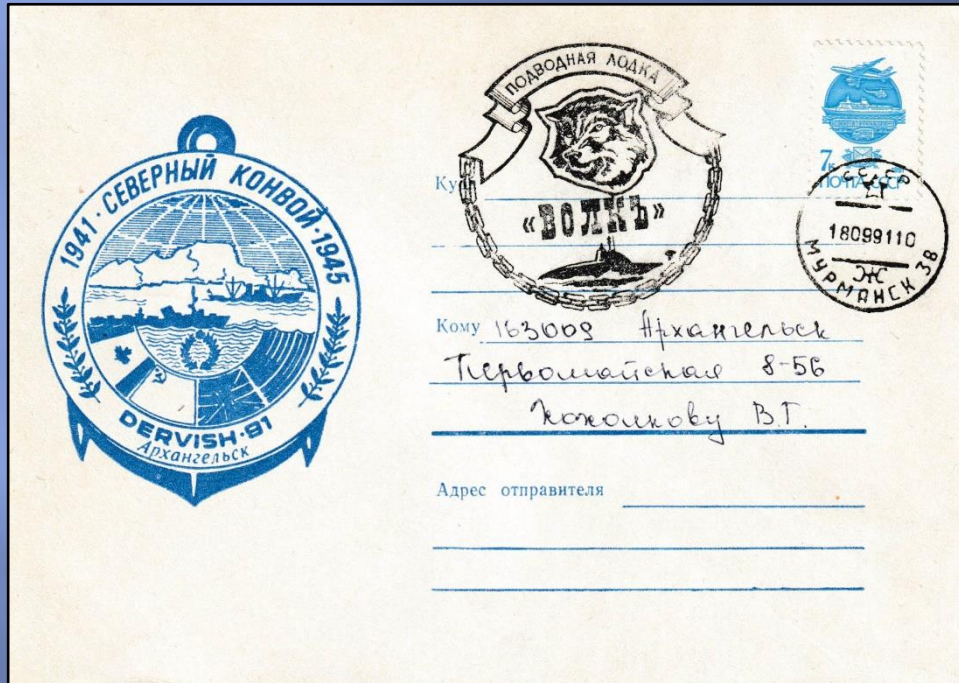 1941 · СЕВЕРНЫЙ КОНВОЙ · 1945
DERVISH·91
Архангельск
ПОДВОДНАЯ ЛОДКА
«ВОЛКЪ»
7к
ПОЧТА СССР
СССР
18099110
Ж
МУРМАНСК 38
Ку
Кому 163009 Архангельск
Первомайская 8-56
В.Г.
Адрес отправителя